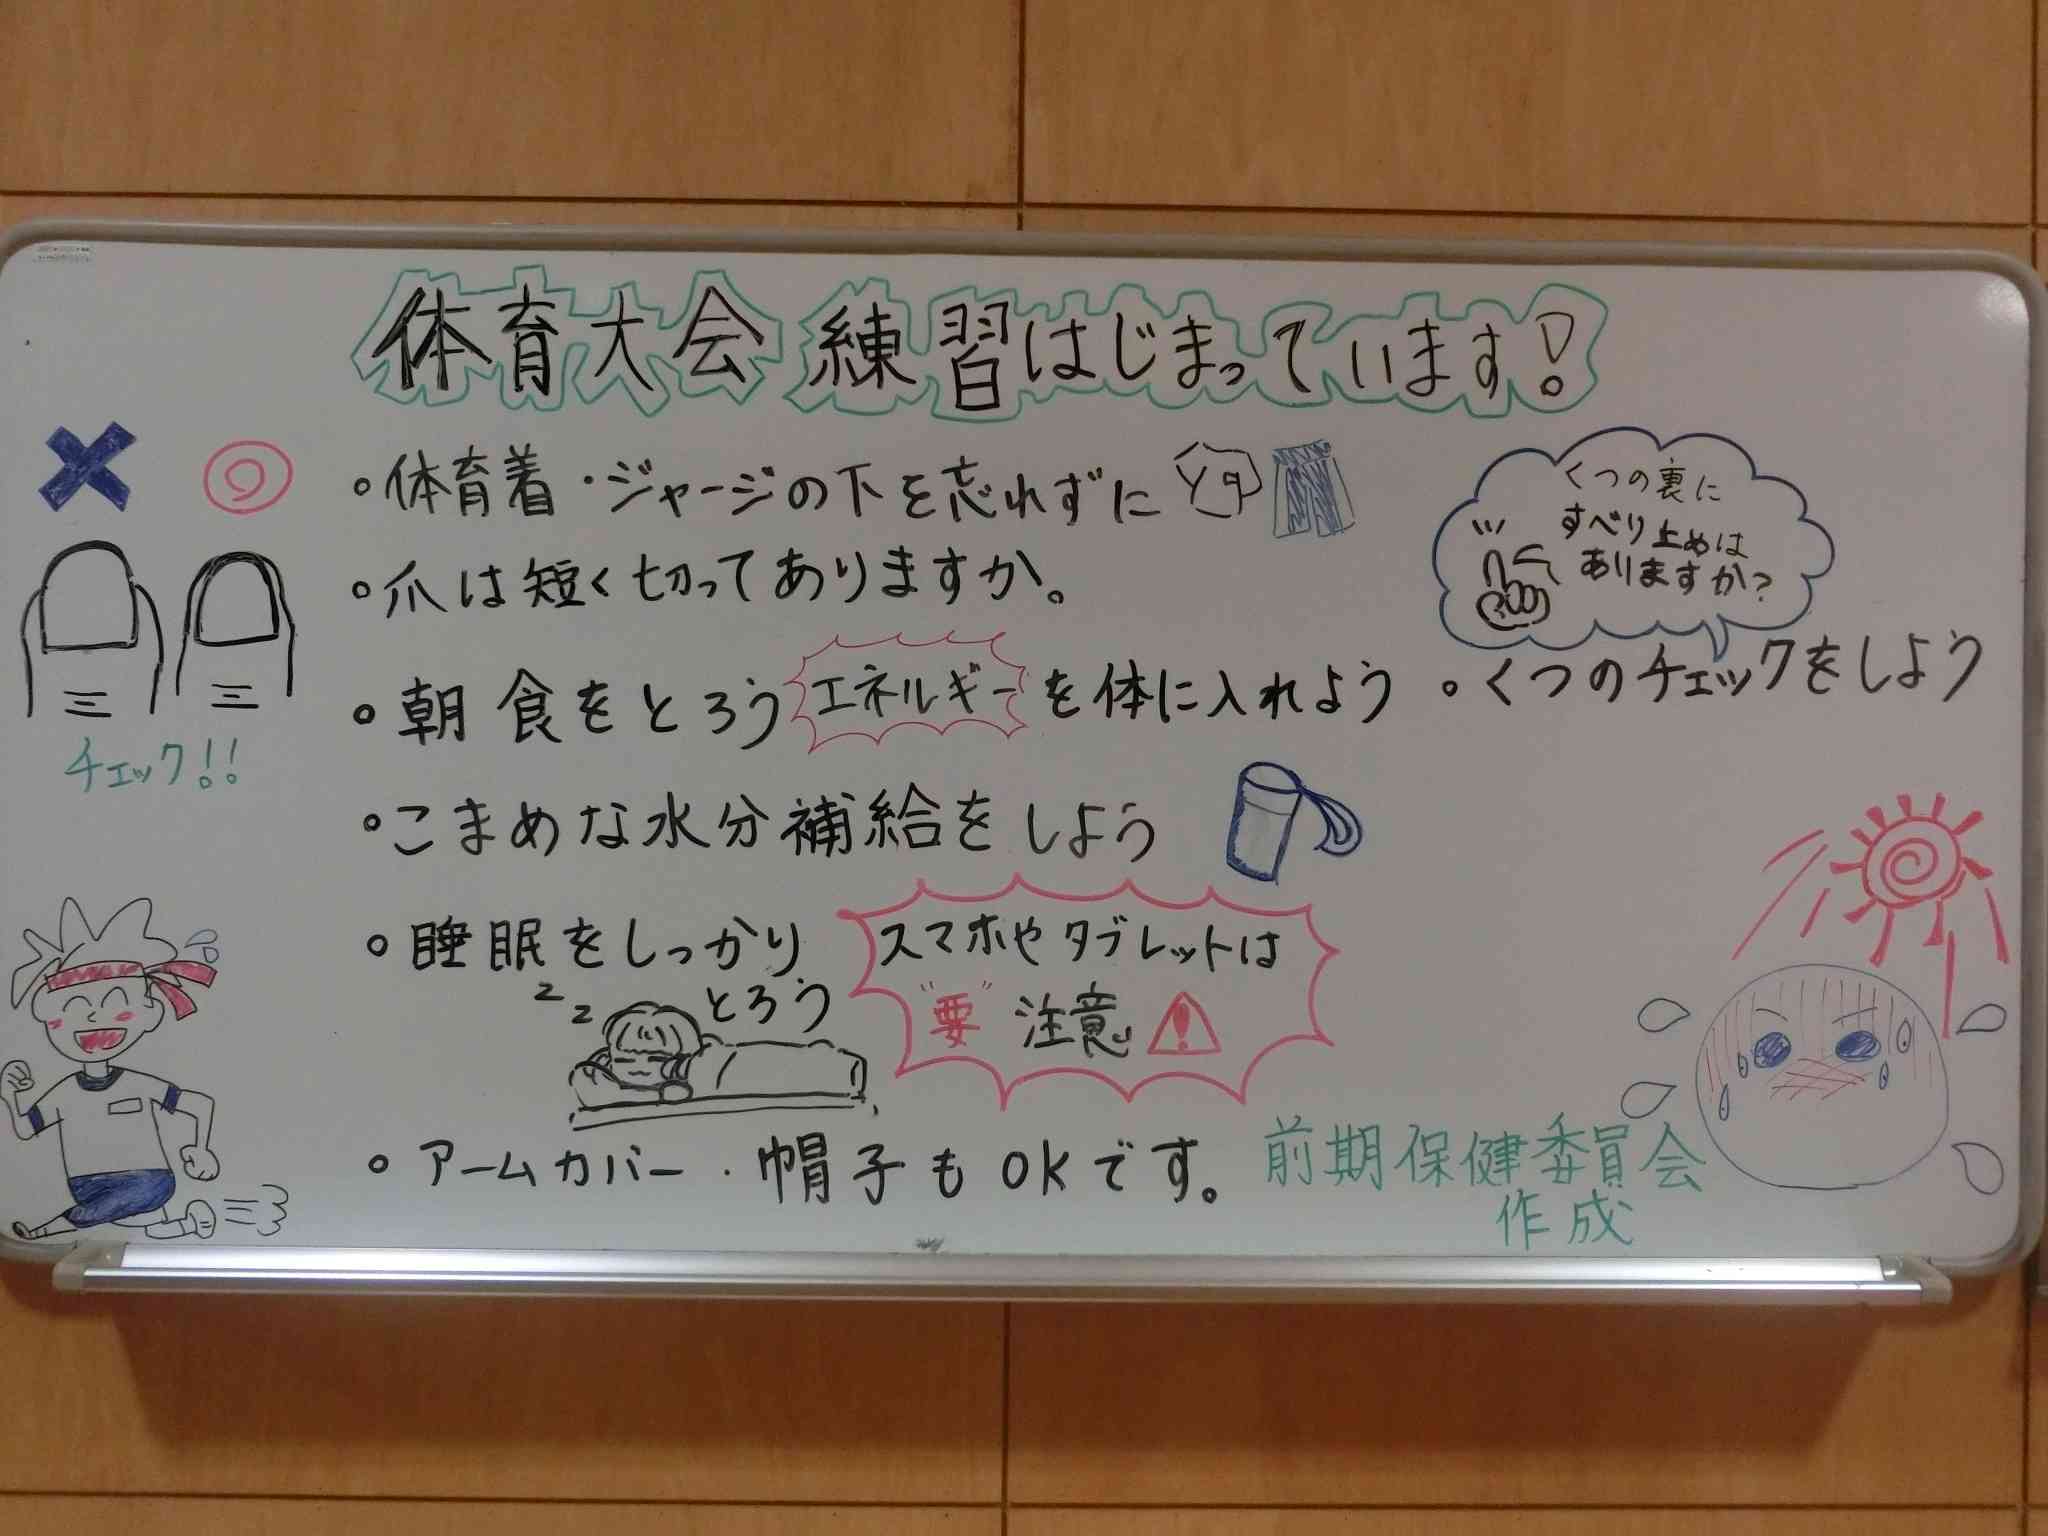 体育大会 練習はじまっています!
・体育着・ジャージの下を忘れずに
・爪は短く切ってありますか。
チェック!!
・朝食をとろう エネルギーを体に入れよう
くつの裏に
すべり止めは
ありますか?
・くつのチェックをしよう
・こまめな水分補給をしよう
・睡眠をしっかり
とろう
zz
スマホやタブレットは
"要"注意
・アームカバー・帽子もOKです。
前期保健委員会
作成